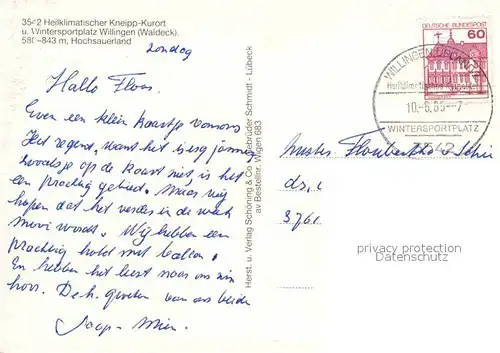 3542 Heilklimatischer Kneipp-Kurort
u. Wintersportplatz Willingen (Waldeck).
580–843 m, Hochsauerland
zondag
Hallo
Even een klein kaartje van ons
Het regent, want het is erg jammer
zoals je op de kaart ziet is het
een prachtig gebied. Maar wij
hopen dat het verder in de week
mooi wordt. Wij hebben een
prachtig
En hebben het best naar ons zin
hoor. De h. groeten van ons beiden
Jaap - Mien.
Herst. u. Verlag Schöning & Co + Gebrüder Schmidt - Lübeck
av Bestellnr. Wigen 683
DEUTSCHE BUNDESPOST
60
WILLINGEN
10.-6.85--7
WINTERSPORTPLATZ
3542
privacy protection
Datenschutz